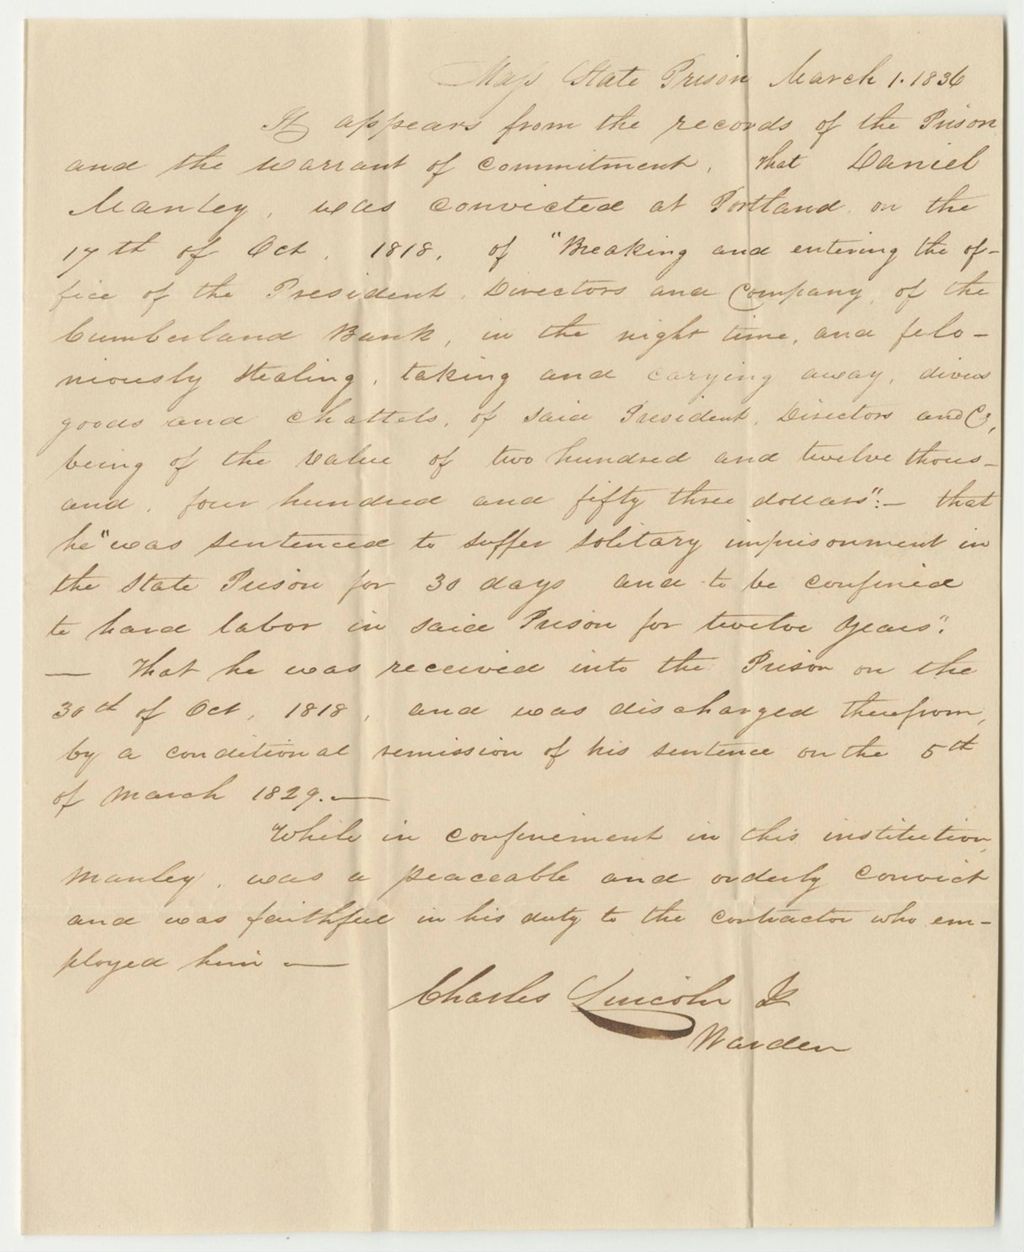 Mass State Prison March 1. 1836
It appears from the records of the Prison
and the warrant of commitment, that Daniel
Manley, was convicted at Portland on the
17th of Oct, 1818, of "Breaking and entering the of-
fice of the President, Directors and Company, of the
Cumberland Bank, in the night time, and felo-
niously stealing, taking and carying away, divers
goods and chattels, of said President, Directors and Co,
being of the value of two hundred and twelve thous-
and, four hundred and fifty three dollars":- that
he "was sentenced to suffer solitary imprisonment in
the State Prison for 30 days and to be confined
to hard labor in said Prison for twelve years".
— That he was received into the Prison on the
30th of Oct, 1818, and was discharged therefrom,
by a conditional remission of his sentence on the 5th
of March 1829. —
While in confinement in this institution,
Manley, was a peaceable and orderly convict
and was faithful in his duty to the contractor who em-
ployed him —
Charles Lincoln Jr
Warden